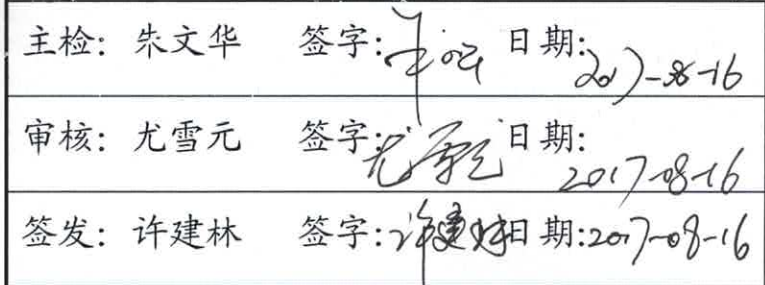 主检: 朱文华 签字: 日期: 2017-08-16
审核: 尤雪元 签字: 尤雪元 日期: 2017-08-16
签发: 许建林 签字: 许建林 日期: 2017-08-16